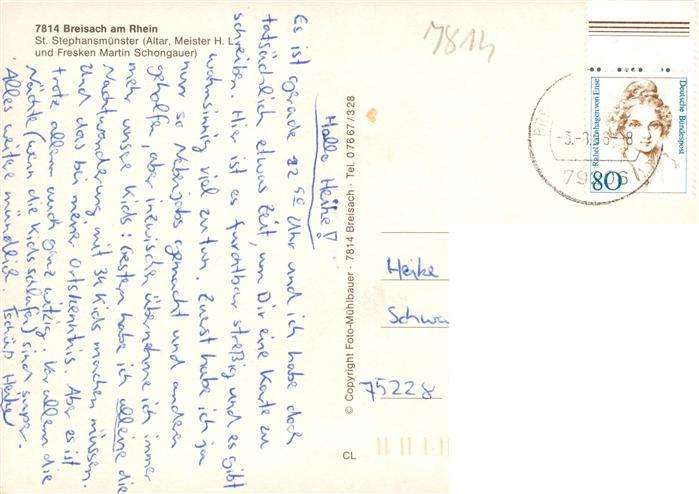 7814 Breisach am Rhein
St. Stephansmünster (Altar, Meister H. L.
und Fresken Martin Schongauer)
7814
Hallo Heike!
Es ist gerade 22 50 Uhr und ich habe doch
tatsächlich etwas Zeit, um Dir eine Karte zu
schreiben. Hier ist es furchtbar streßig und es gibt
wahnsinnig viel zu tun. Zuerst habe ich ja
nur so Nebenjobs gemacht und andern
geholfen, aber inzwischen übernehme ich immer
mehr unsre Kids: Gestern habe ich alleine die
Nachtwanderung mit 34 Kids machen müssen.
Und das bei meiner Ortskenntnis. Aber es ist
trotz allem auch ganz witzig. Vor allem die
Nächte (wenn die Kids schlafen) sind super.
Alles weitere mündlich. Tschüß Heike
© Copyright Foto-Mühlbauer · 7814 Breisach · Tel. 07667/328
CL
Deutsche Bundespost
Rahel Varnhagen von Ense
80
-8
79206
Heike
Schwa
75228